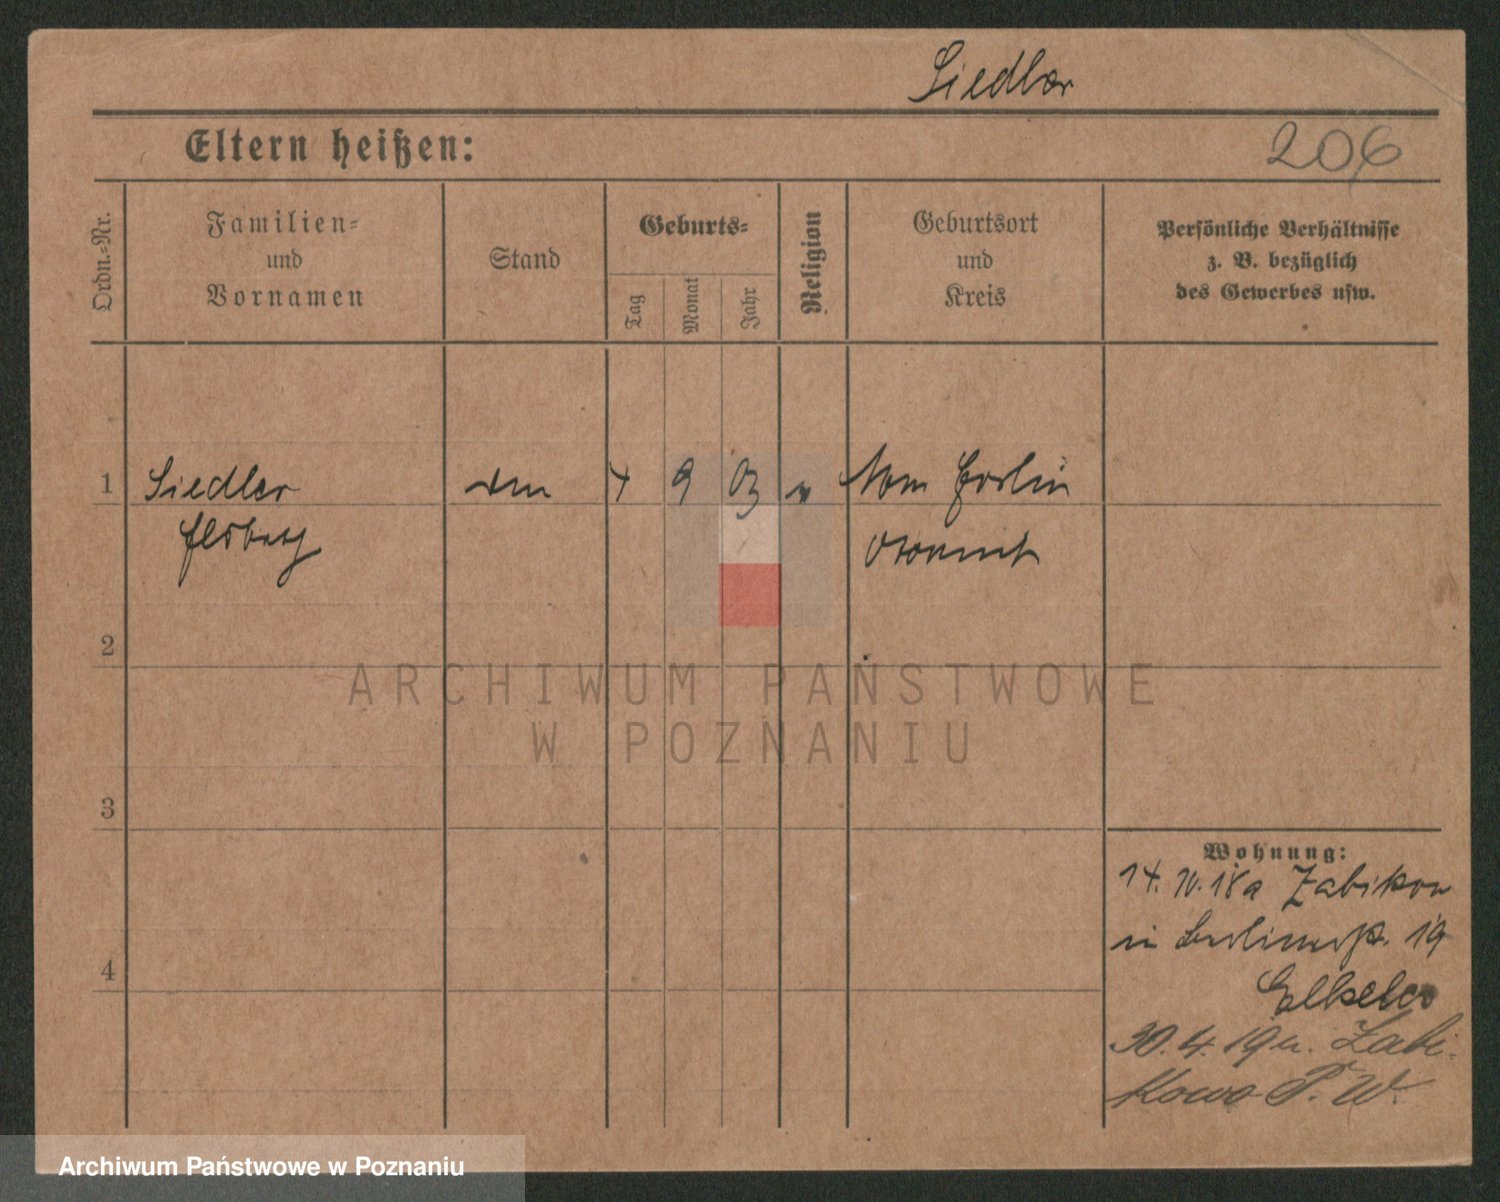 Siedler
Eltern heißen:
206
Ordn.-Nr.
Familien-
und
Vornamen
Stand
Geburts-
Tag
Monat
Jahr
Religion
Geburtsort
und
Kreis
Persönliche Verhältnisse
z. B. bezüglich
des Gewerbes usw.
1
Siedler
4 9 03
2
3
4
Wohnung:
14. IV. 18 a Zabikow
in Berlinerstr. 19
30. 4. 19 n. Zabi-
kowo P. W.
ARCHIWUM PAŃSTWOWE
W POZNANIU
Archiwum Państwowe w Poznaniu